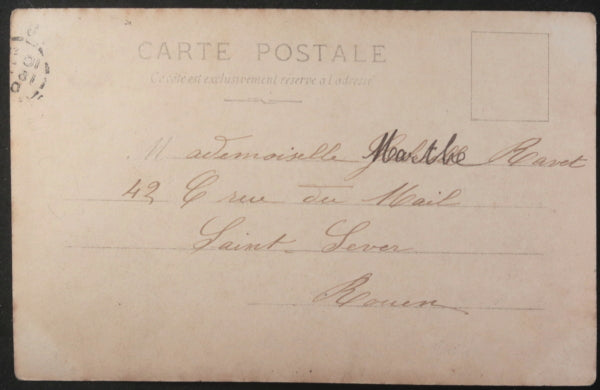 CARTE POSTALE
Ce côté est exclusivement réservé à l'adresse
Mademoiselle Marthe Ravet
42 C rue du Mail
Saint-Sever
Rouen